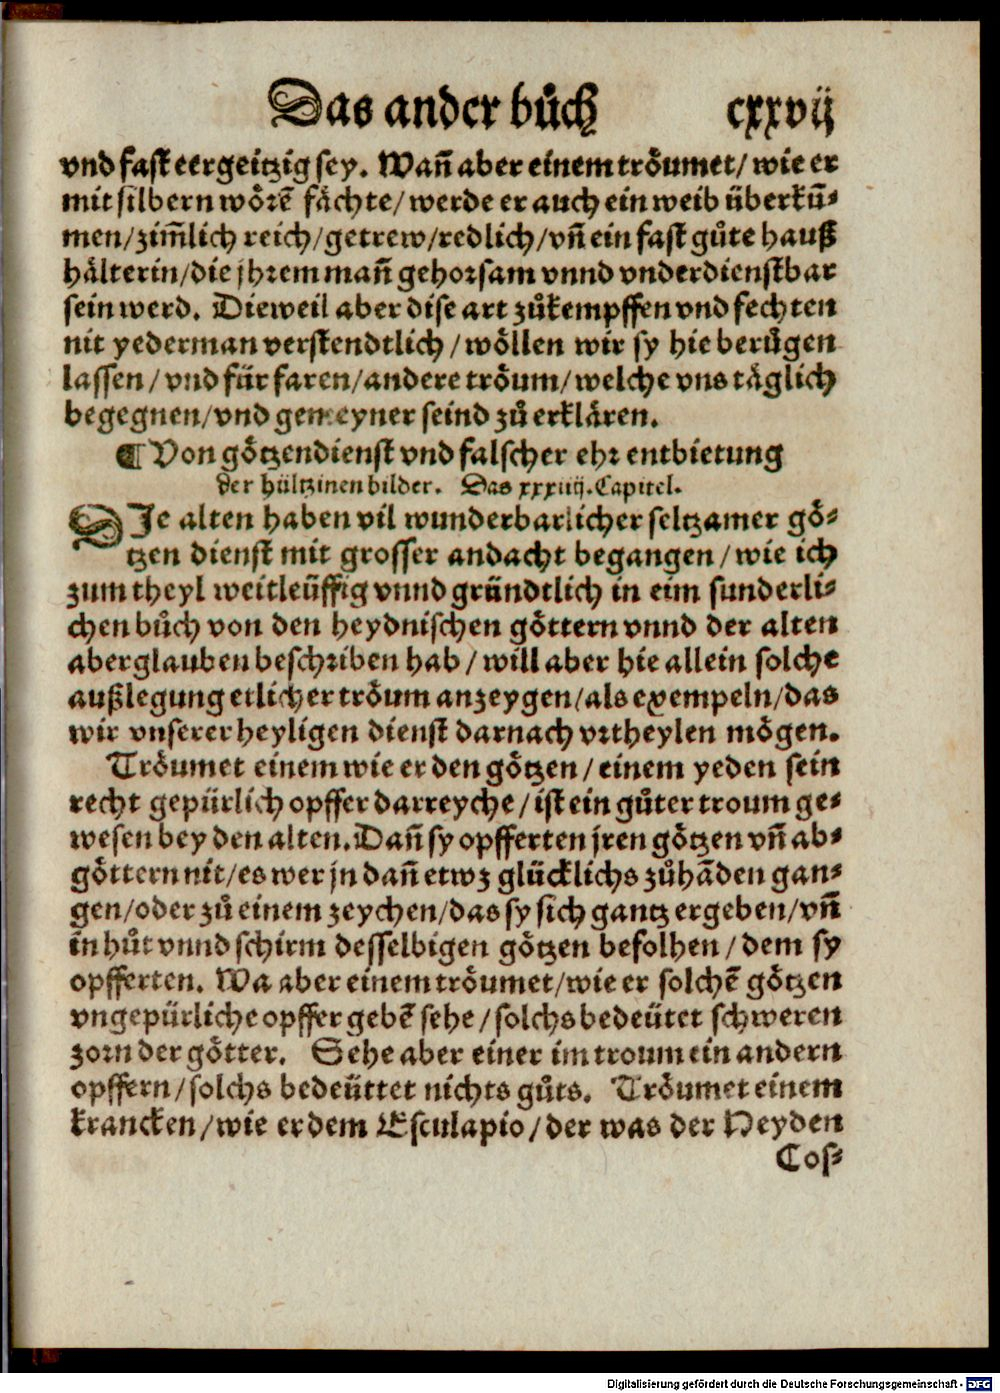 Das ander bůch cxxvij
vnd fast eergeitzig sey. Wañ aber einem tröumet/ wie er
mit silbern wörẽ fächte/ werde er auch ein weib überkũ-
men/ zim̃lich reich/ getrew/ redlich/ vñ ein fast gůte hauß
hälterin/ die jhrem mañ gehorsam vnnd vnderdienstbar
sein werd. Dieweil aber dise art zůkempffen vnd fechten
nit yederman verstendtlich/ wöllen wir sy hie berůgen
lassen/ vnd fürfaren/ andere tröum/ welche vns täglich
begegnen/ vnd gemeyner seind zů erklären.
¶ Von götzendienst vnd falscher ehr entbietung
der hültzinen bilder. Das xxxiiij. Capitel.
DIe alten haben vil wunderbarlicher seltzamer gö-
tzen dienst mit grosser andacht begangen/ wie ich
zum theyl weitleüffig vnnd gründtlich in eim sunderli-
chen bůch von den heydnischen göttern vnnd der alten
aberglauben beschriben hab/ will aber hie allein solche
außlegung etlicher tröum anzeygen/ als exempeln/ das
wir vnserer heyligen dienst darnach vrtheylen mögen.
Tröumet einem wie er den götzen/ einem yeden sein
recht gepürlich opffer darreyche/ ist ein gůter troum ge-
wesen bey den alten. Dañ sy opfferten jren götzen vñ ab-
göttern nit/ es wer jn dañ etwz glücklichs zůhãden gan-
gen/ oder zů einem zeychen/ das sy sich gantz ergeben/ vñ
in hůt vnnd schirm desselbigen götzen befolhen/ dem sy
opfferten. Wa aber einem tröumet/ wie er solchẽ götzen
vngepürliche opffer gebẽ sehe/ solchs bedeütet schweren
zorn der götter. Sehe aber einer im troum ein andern
opffern/ solchs bedeüttet nichts gůts. Tröumet einem
krancken/ wie er dem Esculapio/ der was der Heyden
Cos-
Digitalisierung gefördert durch die Deutsche Forschungsgemeinschaft - DFG